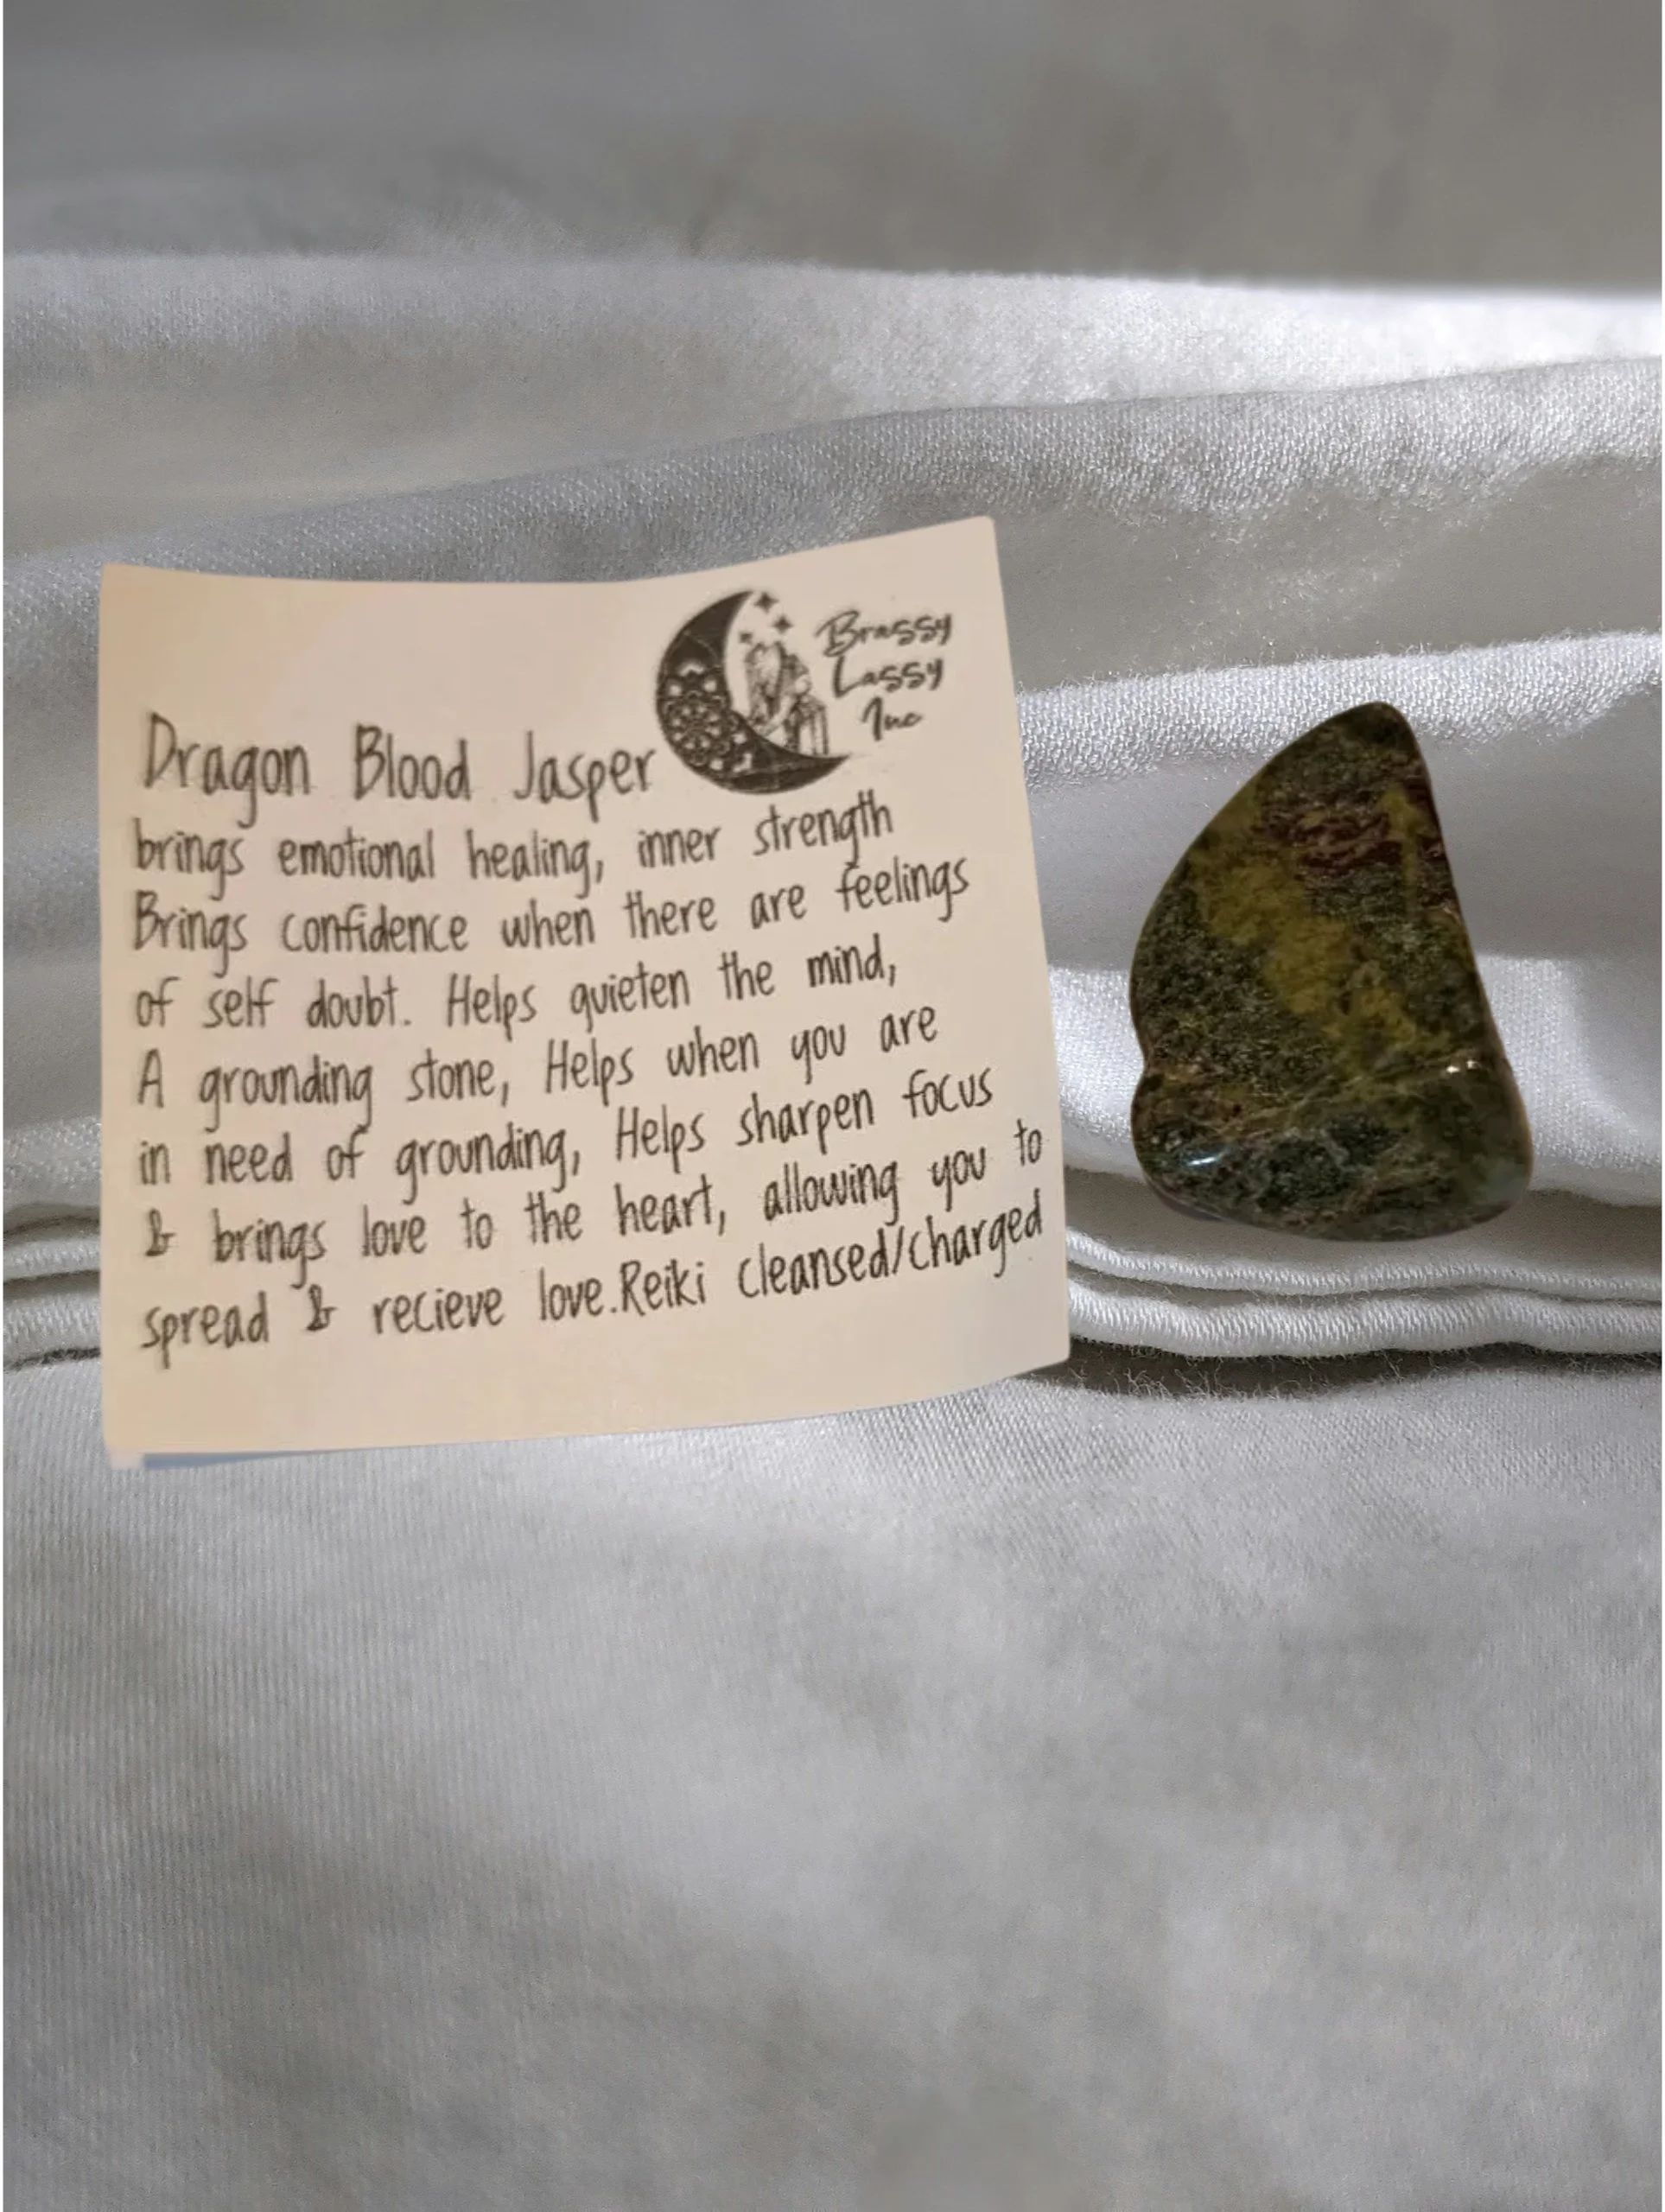 Brassy
Lassy
Inc
Dragon Blood Jasper
brings emotional healing, inner strength
Brings confidence when there are feelings
of self doubt. Helps quieten the mind,
A grounding stone, Helps when you are
in need of grounding, Helps sharpen focus
& brings love to the heart, allowing you to
spread & recieve love.Reiki cleansed/charged